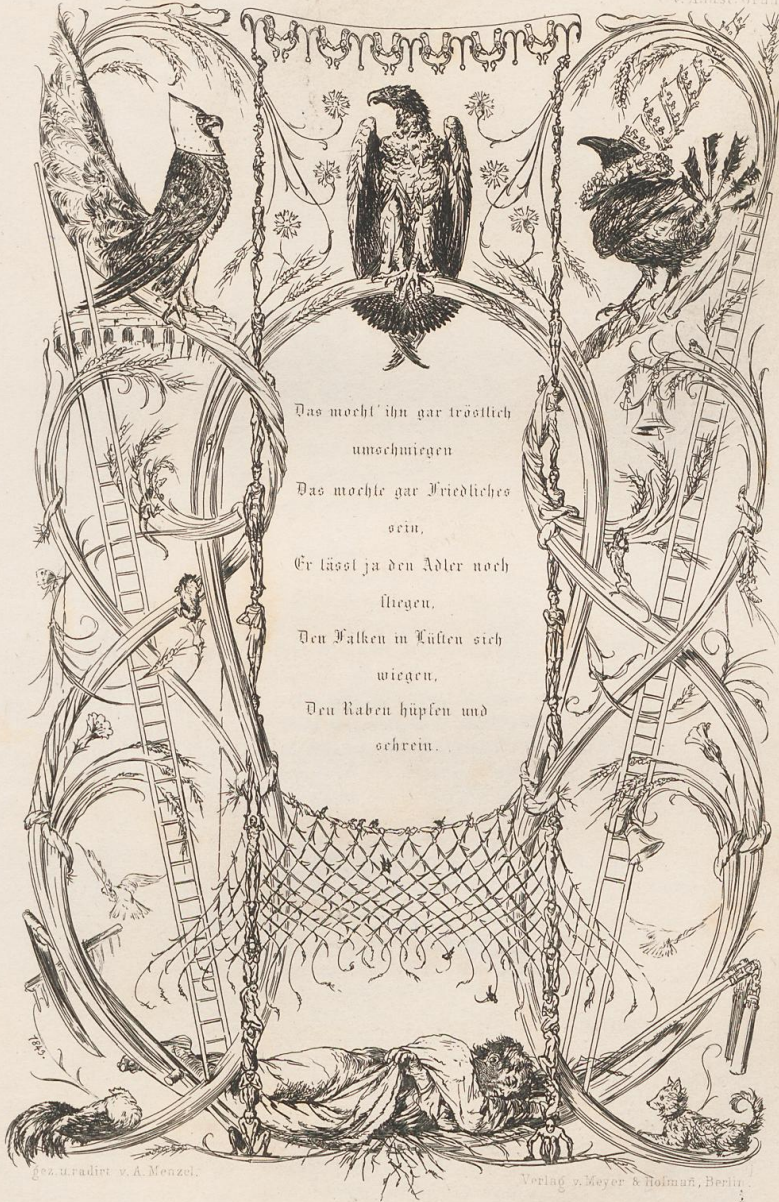 Das mocht' ihn gar tröstlich
umschmiegen
Das mochte gar Friedliches
sein,
Er lässt ja den Adler noch
fliegen,
Den Falken in Lüften sich
wiegen,
Den Raben hüpfen und
schrein.
1843.
gez. u. radirt v. A. Menzel.
Verlag v. Meyer & Hofmañ, Berlin.